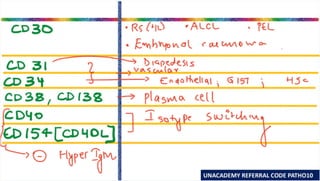 CD30 • RS(HL) • ALCL • PEL
• Embryonal carcinoma.
CD 31 → Diapedesis
vascular
CD 34 → Endothelial, GIST ; HSC
CD38, CD138 → Plasma cell
CD40 ] Isotype switching
CD154 [CD40L]
→ ⊖ Hyper IgM
UNACADEMY REFERRAL CODE PATHO10